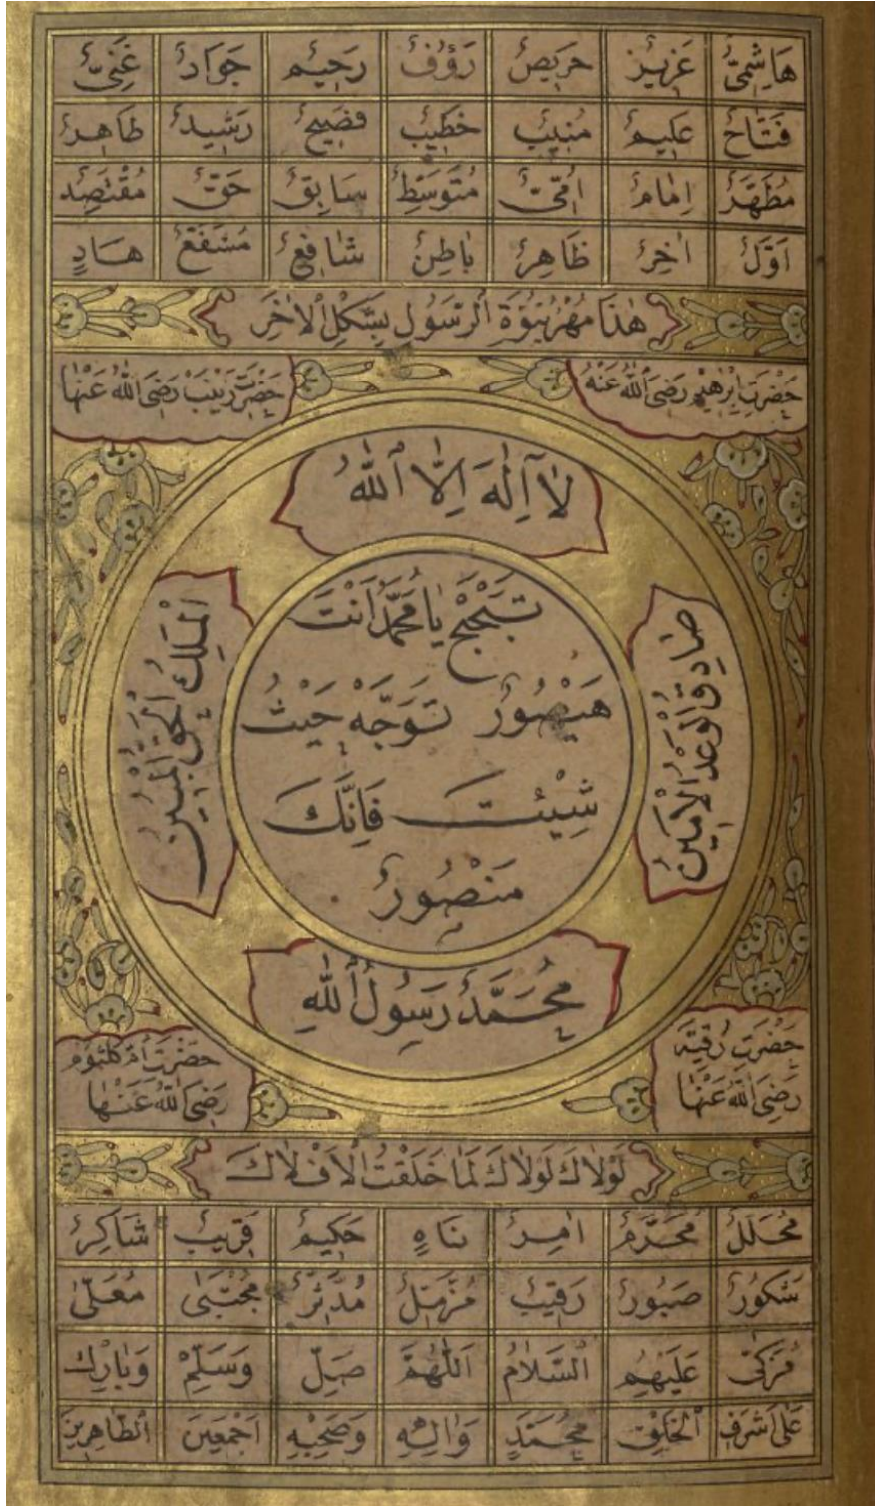 هَاشِمِيٌّ عَزِيزٌ حَرِيصٌ رَؤُفٌ رَحِيمٌ جَوَادٌ غَنِيٌّ
فَتَّاحٌ عَلِيمٌ مُنِيبٌ خَطِيبٌ فَصِيحٌ رَشِيدٌ طَاهِرٌ
مُطَهَّرٌ اِمَامٌ اُمِّيٌّ مُتَوَسِّطٌ سَابِقٌ حَقٌّ مُقْتَصِدٌ
اَوَّلٌ اٰخِرٌ ظَاهِرٌ بَاطِنٌ شَافِعٌ مُشَفَّعٌ هَادٍ
هٰذَا مُهْرُ نُبُوَّةِ الرَّسُولِ بِشَكْلِ الْاٰخَرِ
حَضْرَتِ اِبْرٰهِيمْ رَضِيَ اللّٰهُ عَنْهُ
حَضْرَتِ زَيْنَبْ رَضِيَ اللّٰهُ عَنْهَا
لَآ اِلٰهَ اِلَّا اللّٰهُ
صَادِقُ الْوَعْدُ الْاَمِينُ
الْمَلِكُ الْحَقُّ الْمُبِينُ
يَا مُحَمَّدُ اَنْتَ
تَوَجَّهْ حَيْثُ
شِيْئتَ فَاِنَّكَ
مَنْصُورٌ
مُحَمَّدٌ رَسُولُ اللّٰهِ
حَضْرَتِ رُقِيَّه
رَضِيَ اللّٰهُ عَنْهَا
حَضْرَتِ اُمِّ كُلْثُومْ
رَضِيَ اللّٰهُ عَنْهَا
لَوْلَاكَ لَوْلَاكَ لَمَا خَلَقْتُ الْاَفْلَاكَ
مُحَلِّلٌ مُحَرِّمٌ اٰمِرٌ نَاهٍ حَكِيمٌ قَرِيبٌ شَاكِرٌ
شَكُورٌ صَبُورٌ رَقِيبٌ مُزَّمِّلٌ مُدَّثِّرٌ مُجْتَبٰى مُعَلّٰى
مُزَكّٰى عَلَيْهِمُ السَّلَامُ اَللّٰهُمَّ صَلِّ وَسَلِّمْ وَبَارِكْ
عَلٰى اَشْرَفِ الْخَلْقِ مُحَمَّدٍ وَاٰلِهِ وَصَحْبِهِ اَجْمَعِينَ الطَّاهِرِينَ